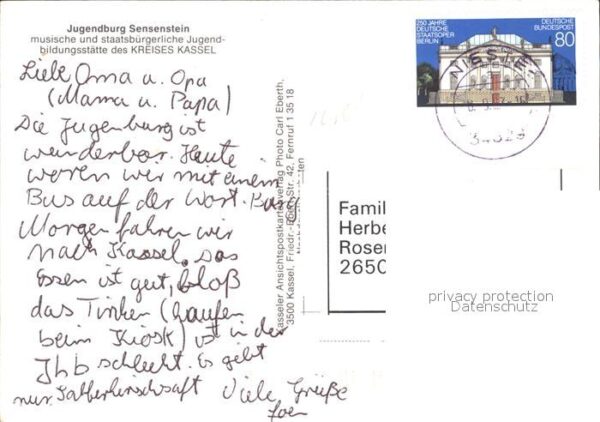 Jugendburg Sensenstein
musische und staatsbürgerliche Jugend-
bildungsstätte des KREISES KASSEL
Liebe Oma u. Opa
(Mama u. Papa)
Die Jugenburg ist
wunderbar. Heute
waren wir mit einem
Bus auf der Wart-Burg
Morgen fahren wir
nach Kassel. Das
Essen ist gut, bloß
das Trinken (kaufen
beim Kiosk) ist in der
Jhb schlecht. Es gibt
nur
Viele Grüße
Kasseler Ansichtspostkartenverlag Photo Carl Eberth,
3500 Kassel, Friedr.-Ebert-Str. 42, Fernruf 1 35 18
250 JAHRE
DEUTSCHE
STAATSOPER
BERLIN
DEUTSCHE
BUNDESPOST
80
34329
Famil
Herbe
Rosen
2650
privacy protection
Datenschutz